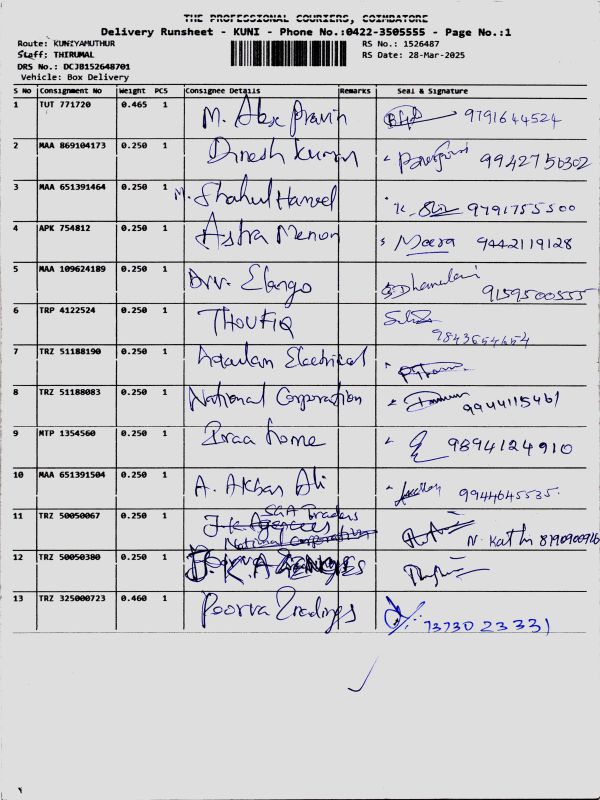 THE PROFESSIONAL COURIERS, COIMBATORE
Delivery Runsheet - KUNI - Phone No.:0422-3505555 - Page No.:1
Route: KUNIYAMUTHUR RS No.: 1526487
Staff: THIRUMAL RS Date: 28-Mar-2025
DRS No.: DCJB152648701
Vehicle: Box Delivery
S No Consignment No Weight PCS Consignee Details Remarks Seal & Signature
1 TUT 771720 0.465 1 M. Abx Pravin 9791644524
2 MAA 869104173 0.250 1 Dinesh Kumar 9942750302
3 MAA 651391464 0.250 1 M. Shahul Hameed K. 9791755500
4 APK 754812 0.250 1 Astra Menon Meera 9442119128
5 MAA 109624189 0.250 1 Elango 9159500555
6 TRP 4122524 0.250 1 THOUFIQ 9843654654
7 TRZ 51188190 0.250 1 Electrical
8 TRZ 51188083 0.250 1 National Corporation 9944115461
9 MTP 1354560 0.250 1 home 9894124910
10 MAA 651391504 0.250 1 A. Akbar Ali 9944645535
11 TRZ 50050067 0.250 1 SGA Traders
J.K. Agencies N. Kathi
National Corporation
12 TRZ 50050380 0.250 1
13 TRZ 325000723 0.460 1 Poorva Tradings 7373023331